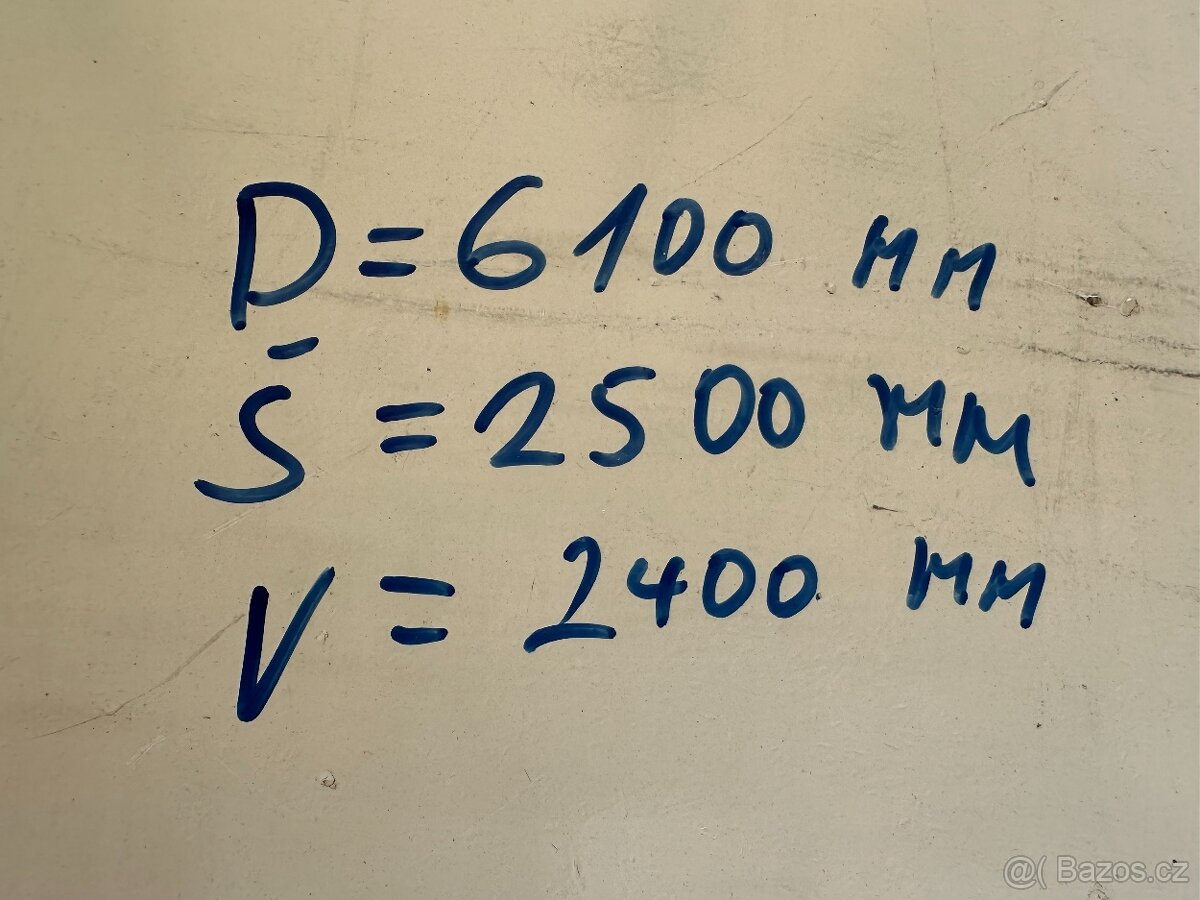 D = 6100 mm
Š = 2500 mm
V = 2400 mm
@( Bazos.cz